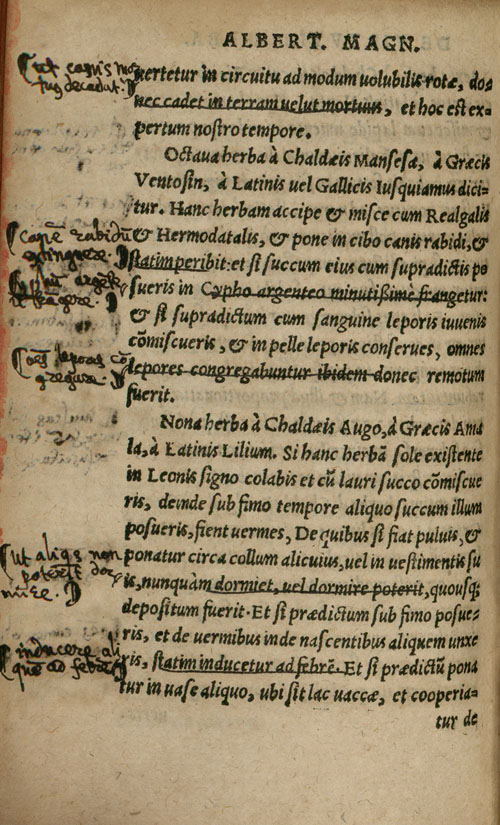 ALBERT. MAGN.
ut canis mor
tuus decadat.
uertetur in circuitu ad modum uolubilis rotæ, do⸗
nec cadet in terram uelut mortuus, et hoc est ex⸗
pertum nostro tempore.
Octaua herba à Chaldæis Mansesa, à Græcis
Ventosin, à Latinis uel Gallicis Iusquiamus dici⸗
tur. Hanc herbam accipe & misce cum Realgalis
canē rabidū
extinguere.
& Hermodatalis, & pone in cibo canis rabidi, &
statim peribit: et si succum eius cum supradictis po
frāgere.
sueris in Cypho argenteo minutißimè frangetur:
& si supradictum cum sanguine leporis iuuenis
cōmiscueris, & in pelle leporis conserues, omnes
oēs lepores cō
gregare.
lepores congregabuntur ibidem donec remotum
fuerit.
Nona herba à Chaldæis Augo, à Græcis Ama
la, à Latinis Lilium. Si hanc herbā sole existente
in Leonis signo colabis et cū lauri succo cōmiscue
ris, deinde sub fimo tempore aliquo succum illum
posueris, fient uermes, De quibus si fiat puluis, &
ut aliqs non
poterit dor
mire.
ponatur circa collum alicuius, uel in uestimentis su
is, nunquàm dormiet, uel dormire poterit, quousq;
depositum fuerit. Et si prædictum sub fimo posue⸗
ris, et de uermibus inde nascentibus aliquem unxe
inducere ali
quē ad febrē
ris, statim inducetur ad febrē. Et si prædictū pona
tur in uase aliquo, ubi sit lac uaccæ, et cooperia⸗
tur de